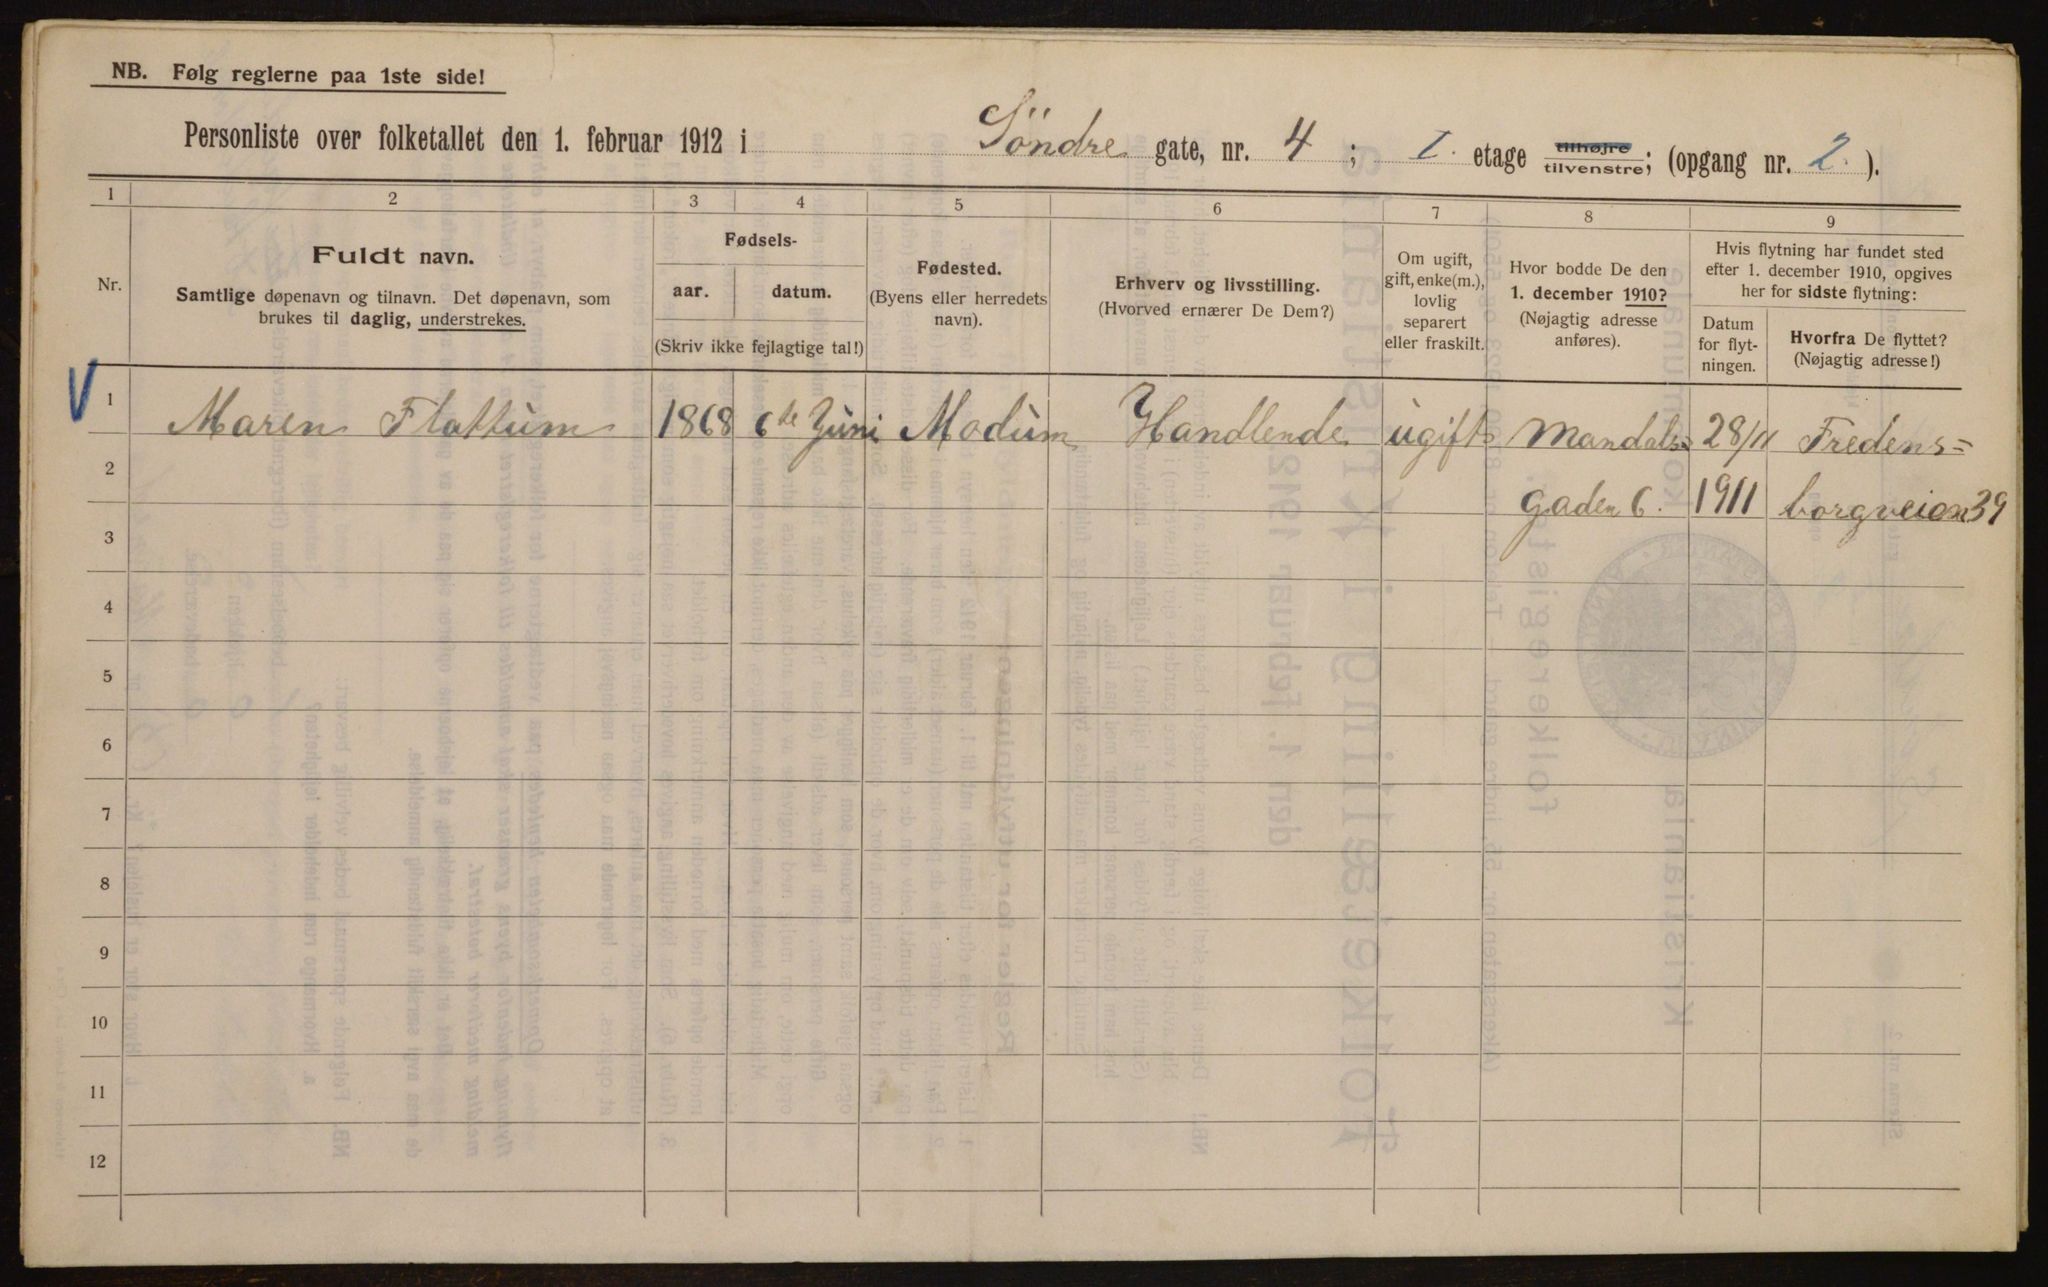 NB. Følg reglerne paa 1ste side!
Personliste over folketallet den 1. februar 1912 i Söndre gate, nr. 4; I. etage tilhøjre tilvenstre; (opgang nr. 2.).
1 2 3 4 5 6 7 8 9
Nr.
Fuldt navn.
Samtlige døpenavn og tilnavn. Det døpenavn, som
brukes til daglig, understrekes.
Fødsels-
aar. datum.
(Skriv ikke fejlagtige tal!)
Fødested.
(Byens eller herredets
navn).
Erhverv og livsstilling.
(Hvorved ernærer De Dem?)
Om ugift,
gift, enke(m.),
lovlig
separert
eller fraskilt.
Hvor bodde De den
1. december 1910?
(Nøjagtig adresse
anføres).
Hvis flytning har fundet sted
efter 1. december 1910, opgives
her for sidste flytning:
Datum
for flyt-
ningen.
Hvorfra De flyttet?
(Nøjagtig adresse!)
V 1 Maren Flattum 1868 6te Juni Modum Handlende ugift Mandals= 28/11 Fredens=
2 gaden 6. 1911 borgveien 39
3
4
5
6
7
8
9
10
11
12